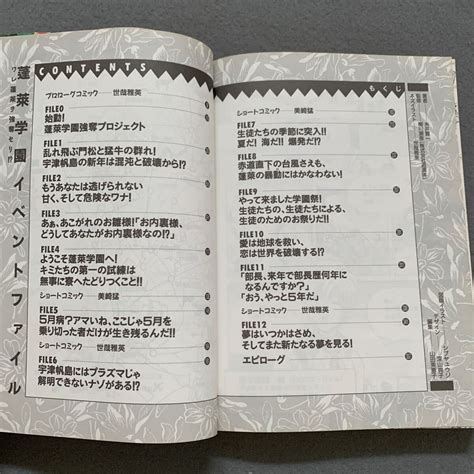 蓬莱学園イベントファイル
CONTENTS
プロローグコミック 世哉雅英
FILE0
始動!
蓬莱学園強奪プロジェクト
FILE1
乱れ飛ぶ門松と猛牛の群れ!
宇津帆島の新年は混沌と破壊から!?
FILE2
もうあなたは逃げられない
甘く、そして危険なワナ!
FILE3
あぁ、あこがれのお雛様!「お内裏様、
どうしてあなたがお内裏様なの!?」
FILE4
ようこそ蓬莱学園へ!
キミたちの第一の試練は
無事に寮へたどりつくこと!!
ショートコミック 美崎猛
FILE5
5月病?アマいね、ここじゃ5月を
乗り切った者だけが生き残るんだ!!
ショートコミック 世哉雅英
FILE6
宇津帆島にはプラズマじゃ
解明できないナゾがある!?
もくじ
ショートコミック 美崎猛
FILE7
生徒たちの季節に突入!!
夏だ! 海だ!! 爆発だ!?
FILE8
赤道直下の台風さえも、
蓬莱の暴動にはかなわない!
FILE9
やって来ました学園祭!
生徒たちの、生徒たちによる、
生徒のためのお祭りだ!!
FILE10
愛は地球を救い、
恋は世界を破壊する!?
FILE11
「部長、来年で部長歴何年に
なるんですか?」
「おう、やっと5年だ」
FILE12
夢はいつかはさめ、
そしてまた新たなる夢を見る!
エピローグ